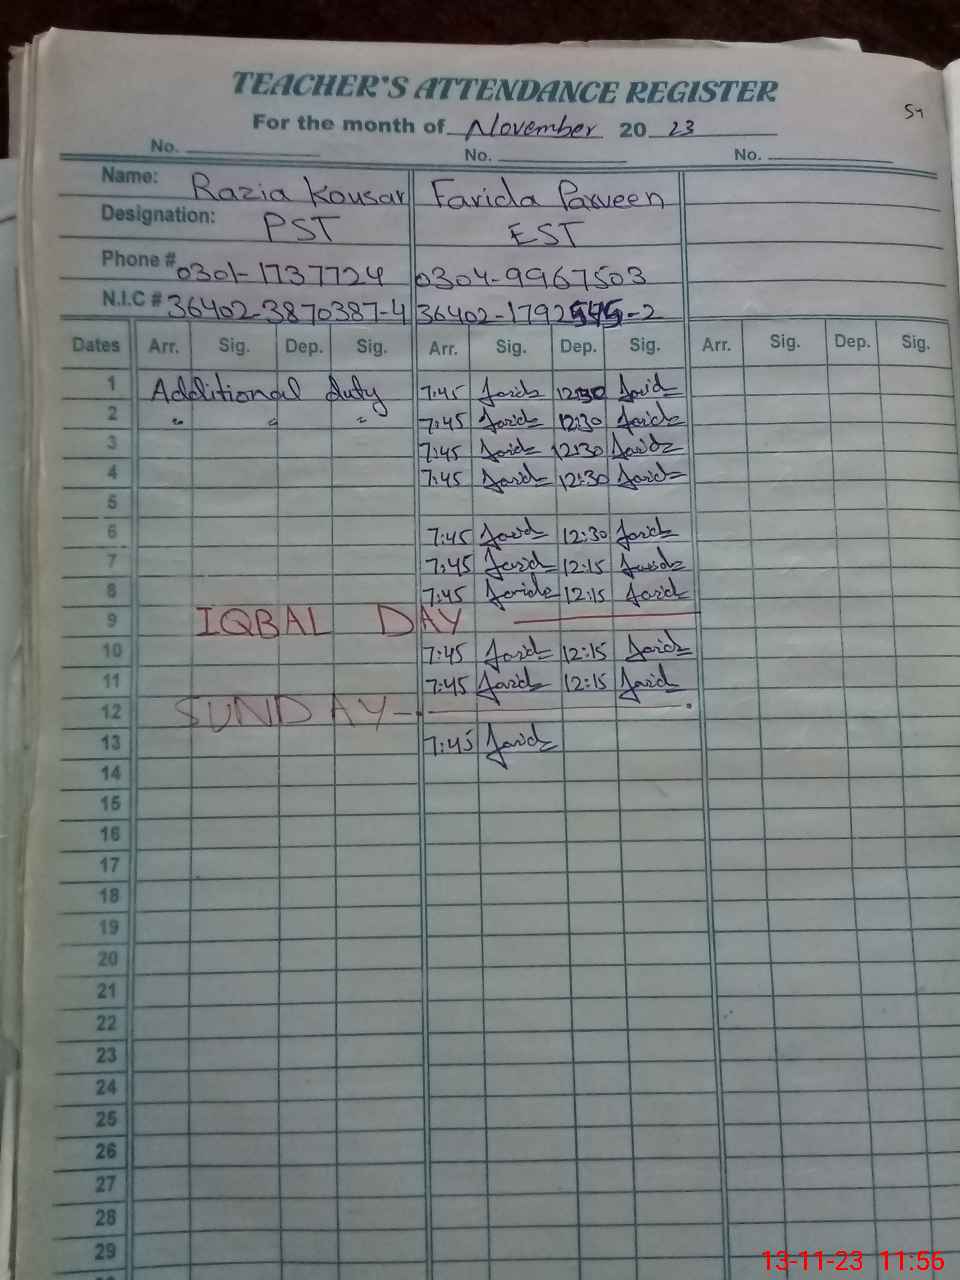 TEACHER'S ATTENDANCE REGISTER
For the month of November 20 23
No. No. No.
Name: Razia Kousar Farida Parveen
Designation: PST EST
Phone # 0301-1737724 0304-9967503
N.I.C # 36402-3870387-4 36402-1792545-2
Dates Arr. Sig. Dep. Sig. Arr. Sig. Dep. Sig. Arr. Sig. Dep. Sig.
1 Additional duty 7:45 Farid 12:30 Farid
2 " " " 7:45 Farid 12:30 Farid
3 7:45 Farid 12:30 Farid
4 7:45 Farid 12:30 Farid
5
6 7:45 Farid 12:30 Farid
7 7:45 Farid 12:15 Farid
8 7:45 Farid 12:15 Farid
9 IQBAL DAY
10 7:45 Farid 12:15 Farid
11 7:45 Farid 12:15 Farid
12 SUNDAY
13 7:45 Farid
14
15
16
17
18
19
20
21
22
23
24
25
26
27
28
29
13-11-23 11:56